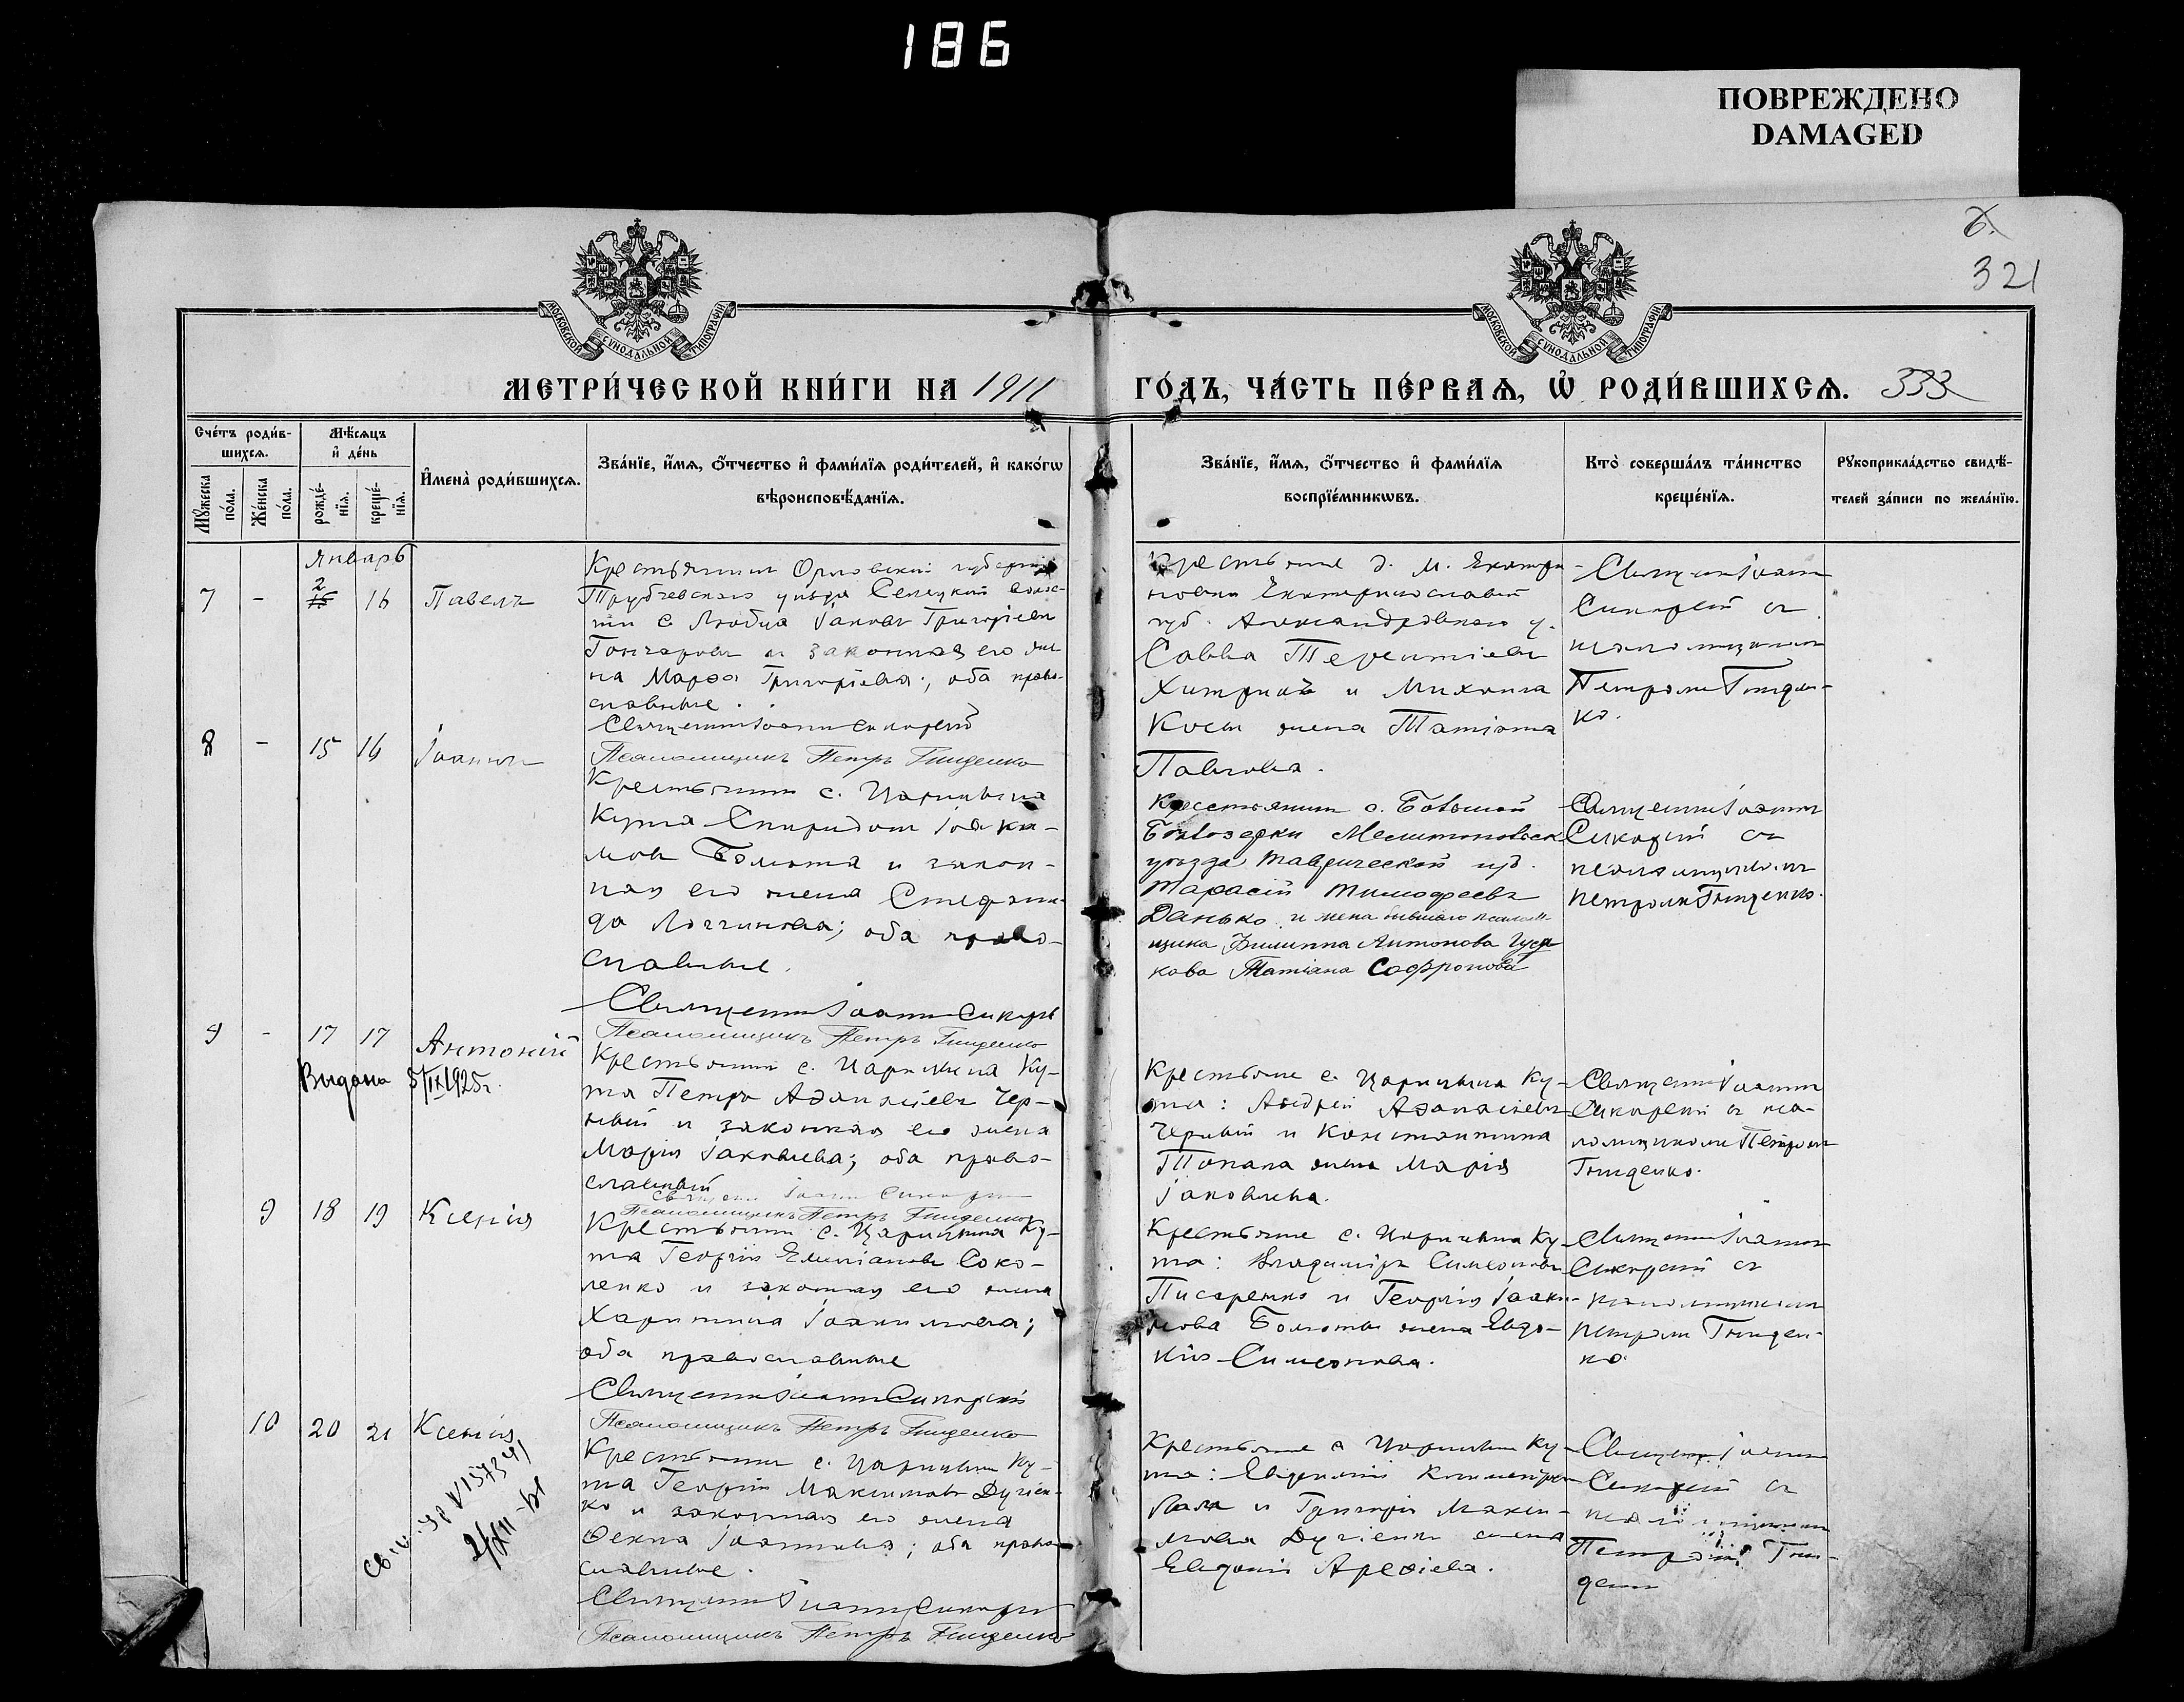 186
ПОВРЕЖДЕНО
DAMAGED
321
МОСКОВСКОЙ СѴНОДАЛЬНОЙ ТИПОГРАФІИ
МОСКОВСКОЙ СѴНОДАЛЬНОЙ ТИПОГРАФІИ
МЕТРИ́ЧЕСКОЙ КНИ́ГИ НА 1911
ГО́ДЪ, ЧА́СТЬ ПЕ́РВАѦ, Ѡ҆ РОДИ́ВШИХСѦ. 333
Сче́тъ роди́в-
шихсѧ.
Мꙋ́жеска по́ла.
Же́нска по́ла.
Мѣ́сѧцъ
и҆ де́нь
рожде́-
нїѧ.
креще́-
нїѧ.
И҆мена̀ роди́вшихсѧ.
Зва́нїе, и҆́мѧ, ѻ҆́тчество и҆ фами́лїѧ роди́телей, и҆ како́гѡ
вѣроисповѣ́данїѧ.
Зва́нїе, и҆́мѧ, ѻ҆́тчество и҆ фами́лїѧ
воспрїе́мникѡвъ.
Кто̀ соверша́лъ та́инство
креще́нїѧ.
Рꙋкоприкла́дство свидѣ́-
телей за́писи по жела́нїю.
Январь
7 - 2 16 Павелъ
Крестьянинъ Орловской губерніи
Трубчевскаго уѣзда Селецкой волос-
ти с Любца Іаковъ Григоріевъ
Гончаровъ и законная его же-
на Марѳа Григоріева; оба право-
славные.
Священникъ Іоаннъ Сикорскій
Псаломщикъ Петръ Гниденко
Крестьяне д. М. Екатери-
новки Екатеринославской
губ. Александровскаго у.
Савва Терентіевъ
Хитрикъ и Михаила
Косы жена Татіана
Павлова.
Священникъ Іоаннъ
Сикорскій съ
псаломщикомъ
Петромъ Гниден-
ко.
8 - 15 16 Іоаннъ
Крестьянинъ с. Царицына
Кута Спиридонъ Іоаки-
мовъ Болюта и закон-
ная его жена Стефани-
да Логгинова; оба право-
славные.
Священникъ Іоаннъ Сикорск
Псаломщикъ Петръ Гниденко
Крестьянинъ с. Большой
Бѣлозерки Мелитопольск
уѣзда Таврической губ.
Тарасій Тимофеевъ
Данько и жена бывшаго псалом
щика Филиппа Антонова Гуса
кова Татіана Софронова
Священникъ Іоаннъ
Сикорскій съ
псаломщикомъ
Петромъ Гниденко.
9 - 17 17 Антоній
Выдана 5/IX 1925г.
Крестьянинъ с. Царицына Ку-
та Петръ Аѳанасіевъ Чер-
ный и законная его жена
Марія Іаковлева; оба право-
славный
Священ Іоаннъ Сикорскі
Псаломщикъ Петръ Гниденко
Крестьяне с. Царицына Ку-
та: Андрей Аѳанасіевъ
Черный и Константина
Топала жена Марія
Іаковлева.
Священникъ Іоаннъ
Сикорскій съ пса-
ломщикомъ Петромъ
Гниденко.
9 18 19 Ксенія
Крестьянинъ с. Царицына Ку-
та Георгій Емиліановъ Соко-
ленко и законная его жена
Харитина Іоакимова;
оба православные
Священникъ Іоаннъ Сикорскій
Псаломщикъ Петръ Гниденко
Крестьяне с. Царицына Ку-
та: Владиміръ Симеоновъ
Писаренко и Георгія Іоаки-
мова Болюты жена Евдо-
кія Симеонова.
Священникъ Іоаннъ
Сикорскій съ
псаломщикомъ
Петромъ Гниден-
ко.
10 20 21 Ксенія
Крестьянинъ с. Царицына Ку-
та Георгій Максимовъ Дугіен-
ко и законная его жена
Ѳекла Іоаннова; оба право-
славные.
Священникъ Іоаннъ Сикорскі
Псаломщикъ Петръ Гниденко
Крестьяне с Царицына Ку-
та: Евдокимъ
и Григорія Макси-
мова Дугіенко жена
Евдокія Арефіева.
Священ Іоаннъ
Сикорскій съ
псаломщикомъ
Петромъ Гни-
денко